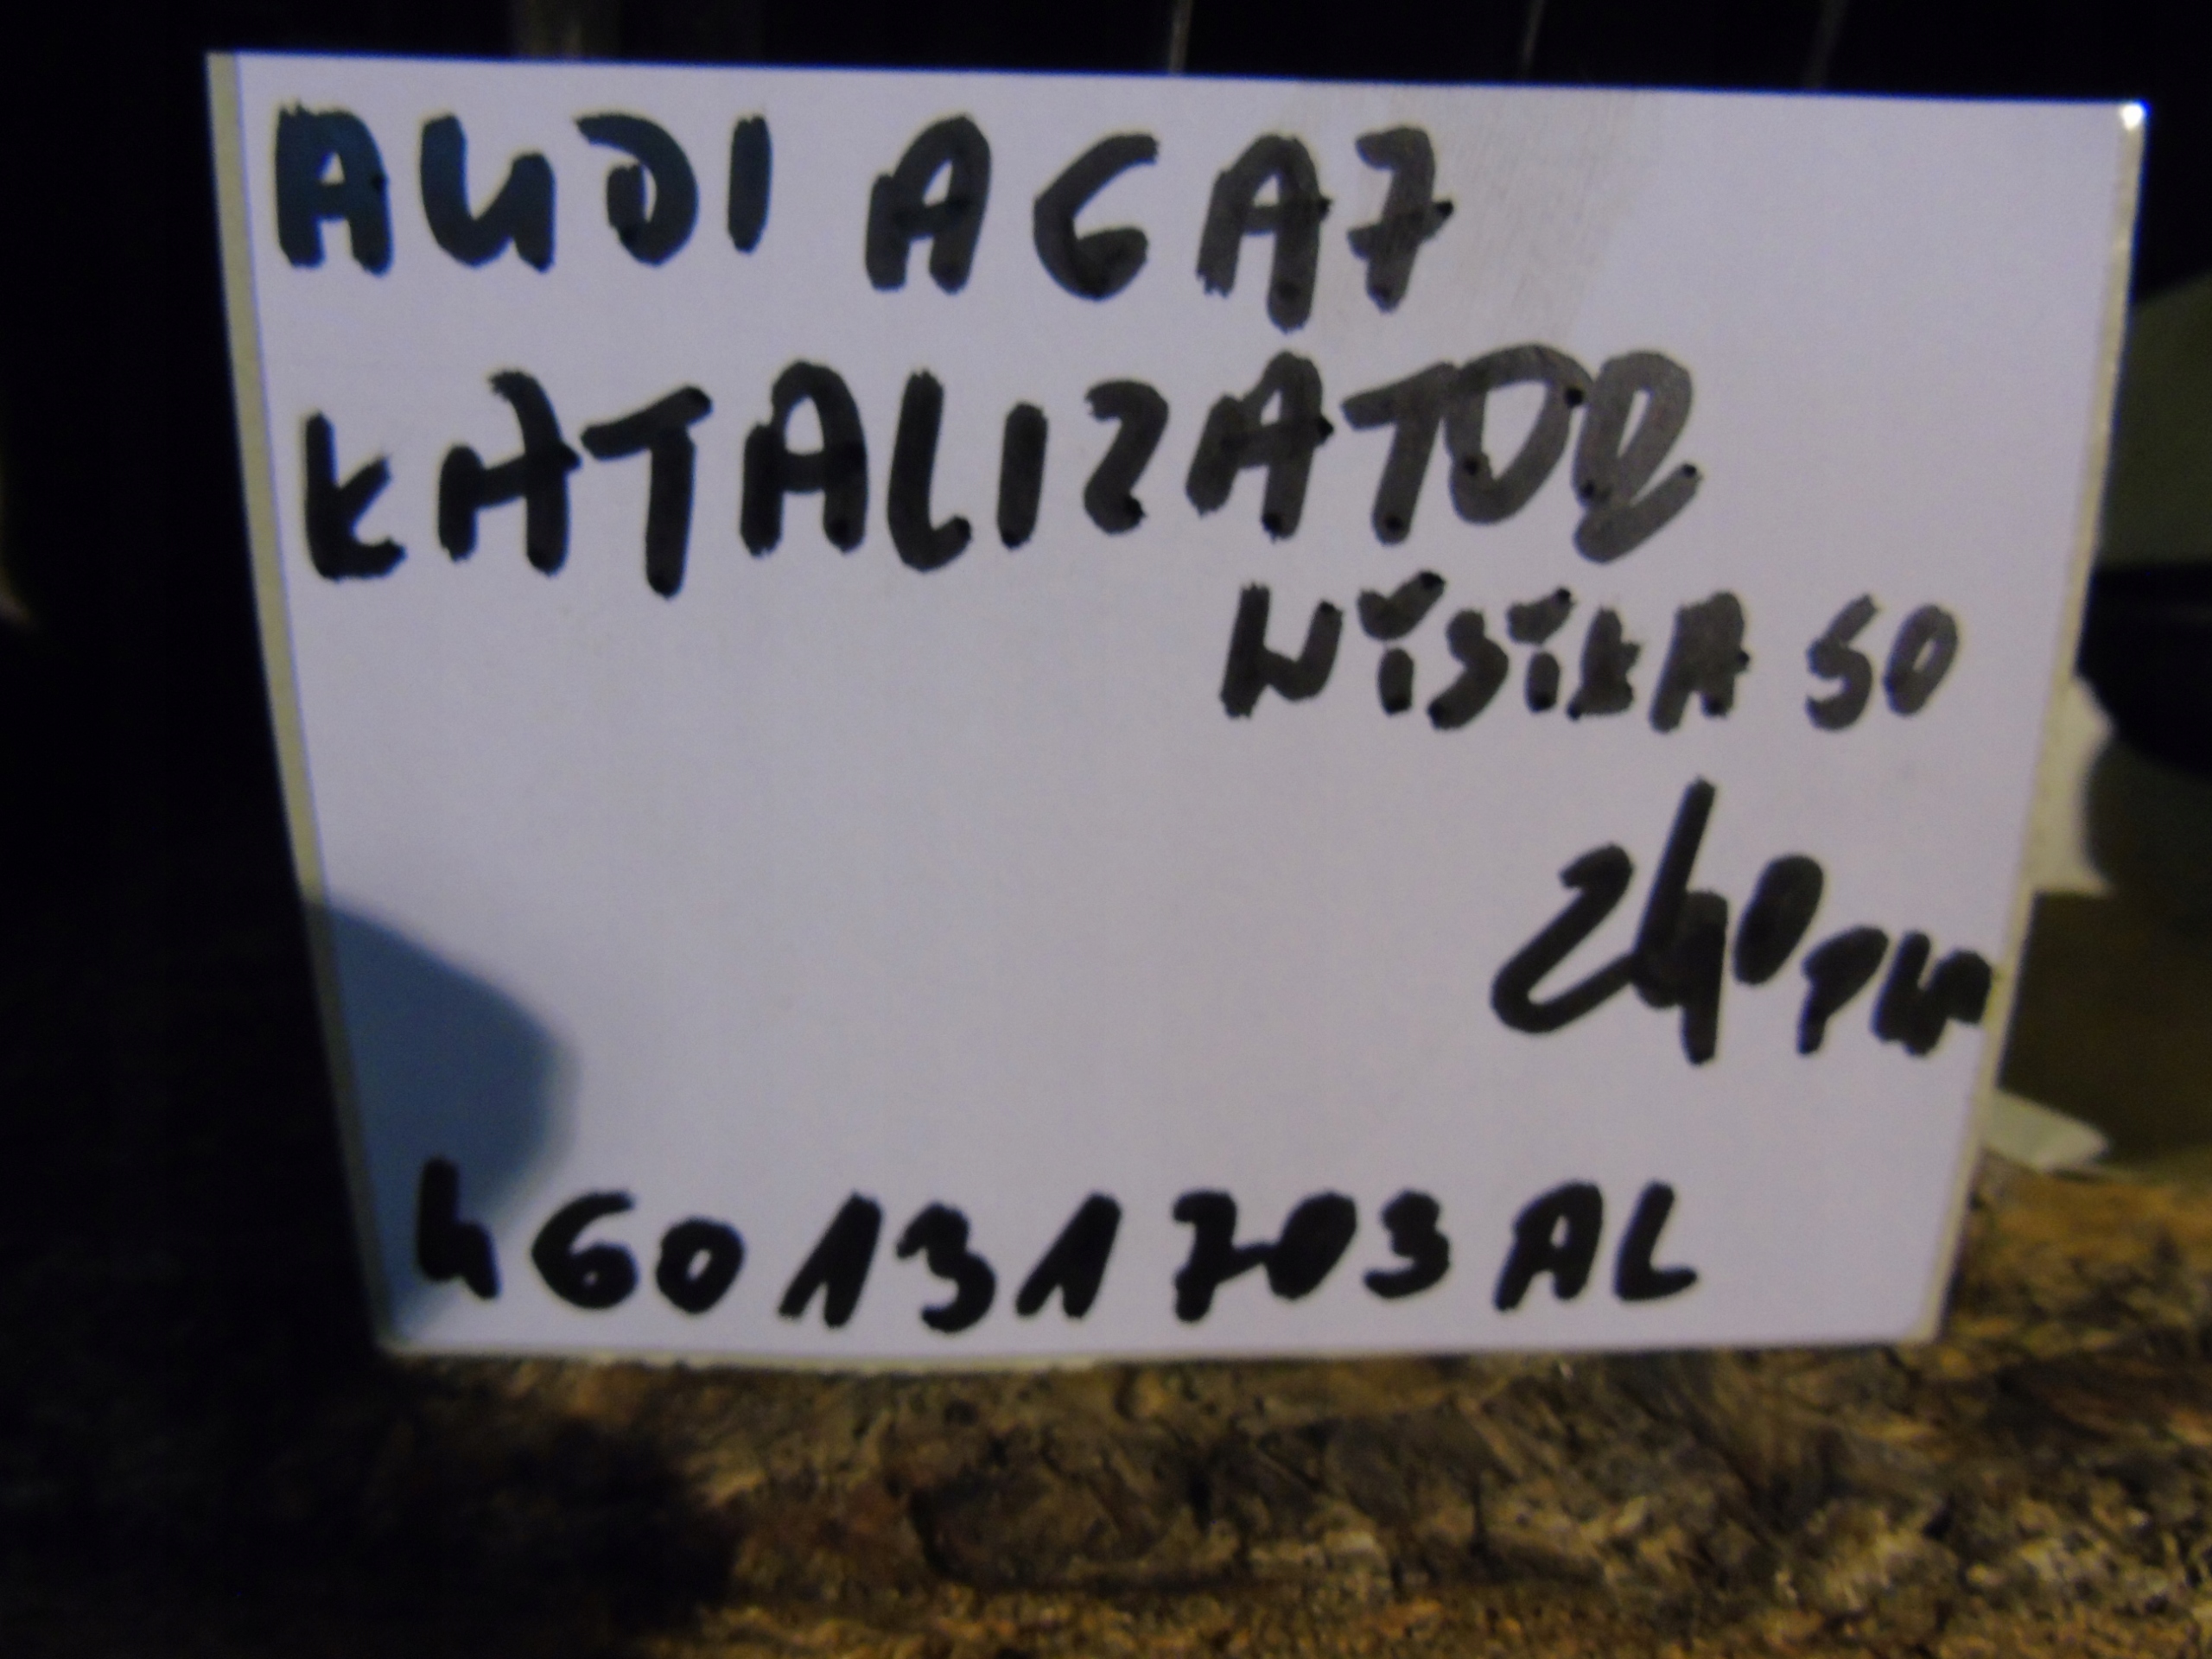 AUDI A6 A7
KATALIZATOR
WYSYŁKA 50
240 PLN
4G0131703AL